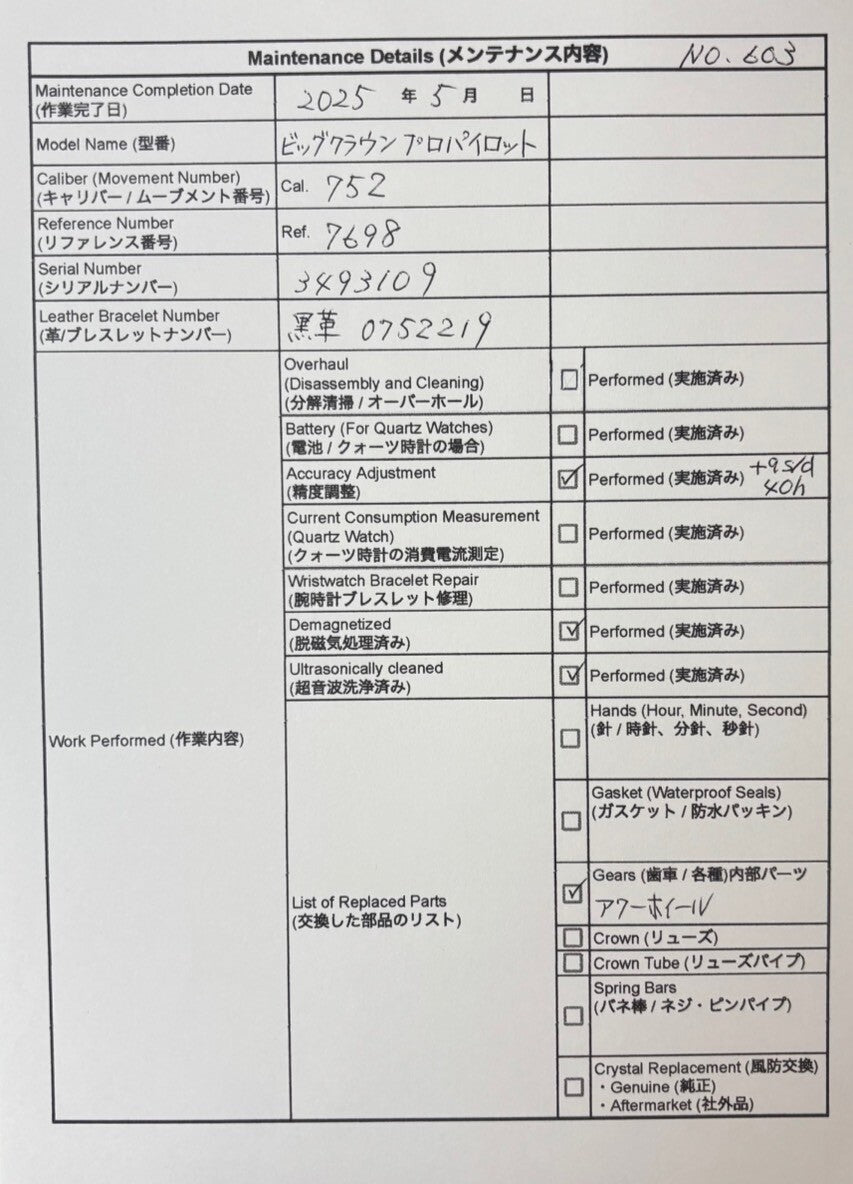 Maintenance Details (メンテナンス内容) NO. 603
Maintenance Completion Date
(作業完了日)
2025 年 5 月 日
Model Name (型番)
ビッグクラウン プロパイロット
Caliber (Movement Number)
(キャリバー / ムーブメント番号)
Cal. 752
Reference Number
(リファレンス番号)
Ref. 7698
Serial Number
(シリアルナンバー)
3493109
Leather Bracelet Number
(革/ブレスレットナンバー)
黒革 0752219
Work Performed (作業内容)
Overhaul
(Disassembly and Cleaning)
(分解清掃 / オーバーホール)
Performed (実施済み)
Battery (For Quartz Watches)
(電池 / クォーツ時計の場合)
Performed (実施済み)
Accuracy Adjustment
(精度調整)
Performed (実施済み) +9 s/d
40h
Current Consumption Measurement
(Quartz Watch)
(クォーツ時計の消費電流測定)
Performed (実施済み)
Wristwatch Bracelet Repair
(腕時計ブレスレット修理)
Performed (実施済み)
Demagnetized
(脱磁気処理済み)
Performed (実施済み)
Ultrasonically cleaned
(超音波洗浄済み)
Performed (実施済み)
List of Replaced Parts
(交換した部品のリスト)
Hands (Hour, Minute, Second)
(針 / 時針、分針、秒針)
Gasket (Waterproof Seals)
(ガスケット / 防水パッキン)
Gears (歯車 / 各種)内部パーツ
アワーホイール
Crown (リューズ)
Crown Tube (リューズパイプ)
Spring Bars
(バネ棒 / ネジ・ピンパイプ)
Crystal Replacement (風防交換)
・Genuine (純正)
・Aftermarket (社外品)